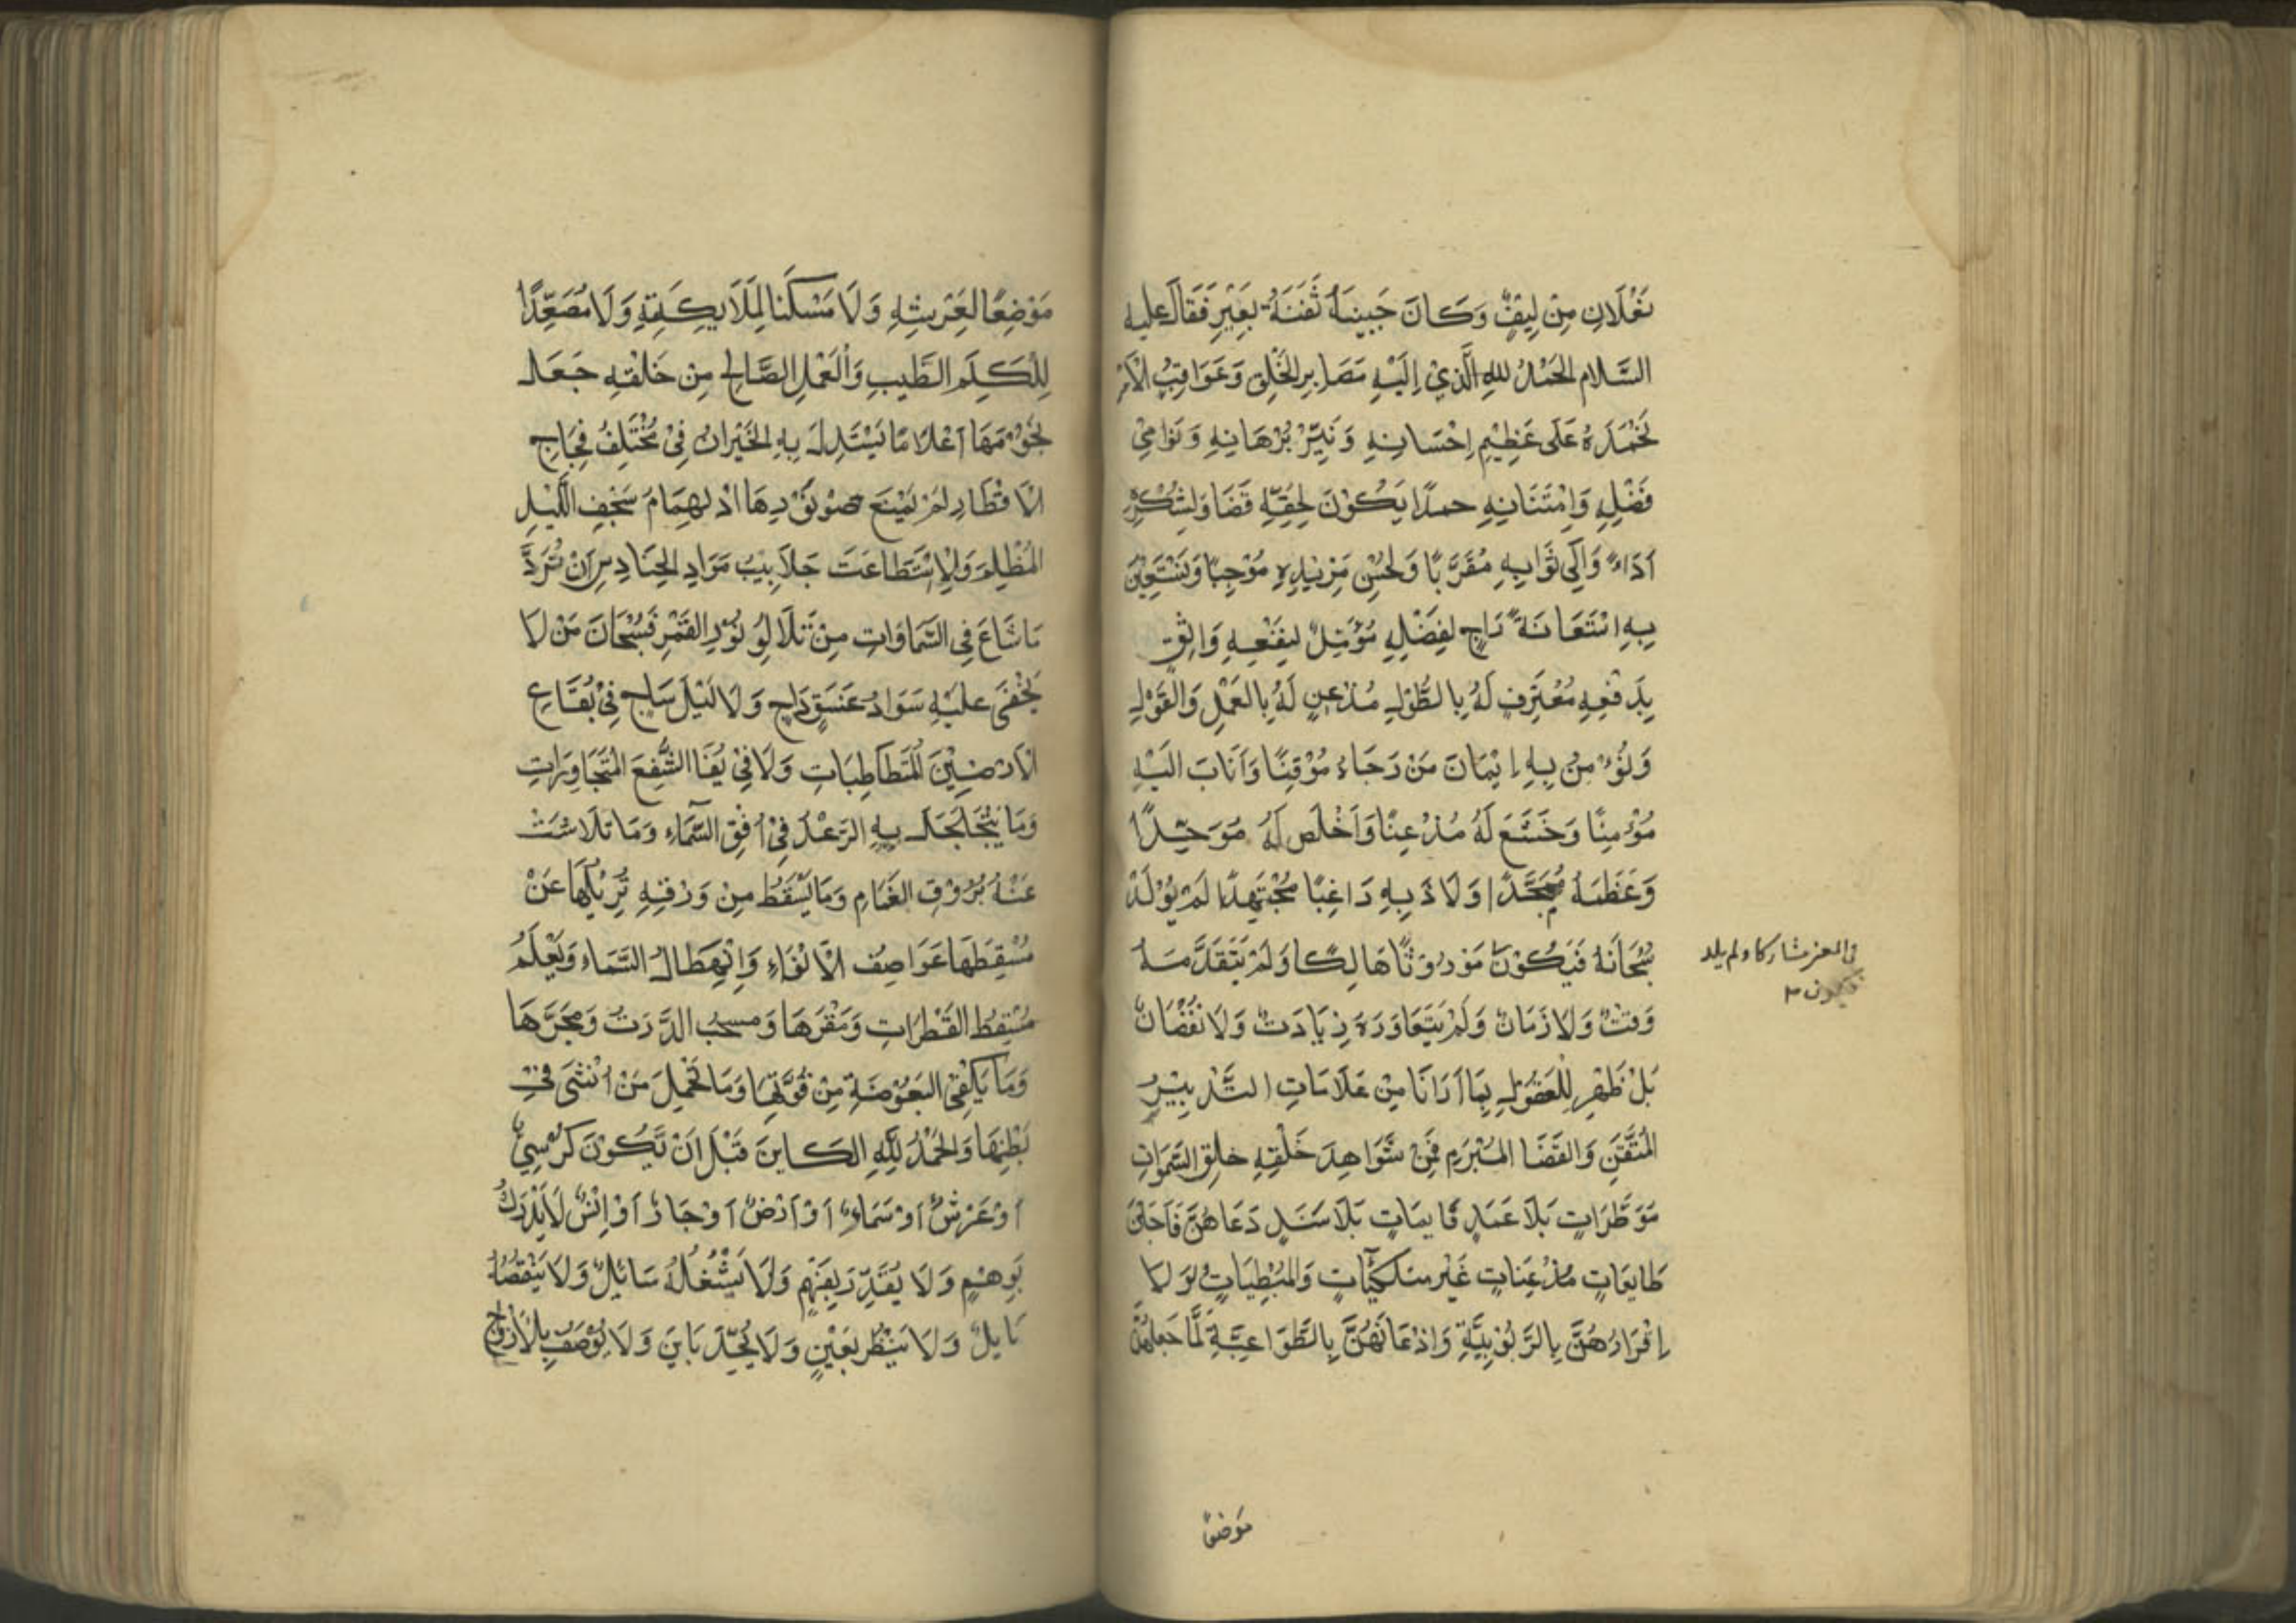 نَعْلَانِ مِنْ لِيْفٍ وَكَانَ جَبِينَهُ ثَفِنَةُ بَعِيْرٍ فَقَالَ عليه
السَّلام الحَمْدُ للهِ الَّذِيْ اِلَيْهِ مَصَايِر الخَلْقِ وَعَوَاقِبُ الْأَمْرِ
نَحْمَدُهُ عَلَى عَظِيْمِ اِحْسَانِهِ وَنَيِّرْ بُرْهَانِهِ وَنَوَامِيْ
فَضْلِهِ وَامْتَنَانِهِ حمدًا يَكُوْنَ لِحَقِّهِ قَضَا وَلِشُكْرِهِ
اَدَاءً وَاِلَى ثَوَابِهِ مُقَرَّبًا وَلِحُسْنِ مَزِيْدِهِ مُوْجِبًا وَنَسْتَعِيْنُ
بِهِ اسْتَعَانَةً رَاجٍ لِفَضْلِهِ مُؤَمِّلٌ لِنَفْعِهِ وَاثِقٍ
بِدَفْعِهِ مُعْتَرِفٍ لَهُ بِالطُّوْلِ مُذْعِنٍ لَهُ بِالعَمْلِ وَالْقَوْلِ
وَنُؤْمِنُ بِهِ اِيْمَانَ مَنْ رَجَاهُ مُوْقِنًا وَاَنَابَ اليَهْ
مُؤْمِنًا وَخَشَعَ لَهُ مُذْعِنًا وَاَخْلَص لَهُ مُوَحِّدًا
وَعَظَّمَهُ مُمَجَّدًا وَلَاذَ بِهِ رَاغِبًا مُجْتَهِدًا لَمْ يُوْلَدْ
سُبْحَانَهُ فَيَكُوْنَ مَوْرُوْثًا هَالِكًا وَلَمْ يَتَقَدَّمَهُ
فى العز مشاركا ولم يلد
فيكون ٢
وَقتٌ وَلَا زَمَانٌ وَلَمْ يَتَعَاوَرَهُ زِيَادَتٌ وَلَا نُقْصَانٌ
بَلْ ظَهِرِ لِلْعَقُوْلِ بِمَا اَرَانَا مِنْ عَلَامَاتِ التَّدْبِيْرِ
المُتْقَنِ وَالقَضَا المُبْرَمِ فَمِنْ شَوَاهِدَ خَلْقِهِ خلق السَّمٰوَاتِ
مَوَطَّرَاتٍ بَلَا عَمَدٍ قَايمَاتٍ بَلَا سَنَدٍ دَعَاهُنَّ فَاَجَبْنَ
طَايِعَاتٍ مُذْعِنَاتٍ غَيْر متلكّئَاتٍ وَالمُبْطِيَاتٍ لَو لَا
اِقْرَارُهُنَّ بِالرَّبُوْبِيَّةِ وَاِذْعَانَهُنَّ بِالطَّوَاعِيَّةِ لَمَّا جَعلهُنَّ
مَوضعًا
مَوْضِعًا لِعَرْشِهِ وَلَا مَسْكَنًا لِمَلَايِكَتِهِ وَلَا مُصَعِّدًا
لِلْكَلِمِ الطَّيِبِ وَالْعَمْلِ الصَّالِحِ مِنْ خَلْقهِ جَعَلَ
نُجُوْمَهَا اَعْلَامًا يَسْتَدِلُّ بِهِ الحَيْرَانُ فِيْ مُخْتَلِفُ فِجَاجِ
الْاَقْطَارِ لَمْ يَمْنَع ضَوْءَ نُوْرِهَا ادْلِهْمَامُ سَجْفِ اللَّيْلِ
المُظْلِمَ وَلَا اسْتَطَاعَتَ جَلَابِيْبُ سَوَادِ الحَنَادِسِ اَنْ تُرَدَّ
مَا شَاعَ فِي السَّمَاوَاتِ مِنْ تَلَالُوِ نُوْرِ القَمْرِ فَسُبْحَانَ مَنْ لَا
يَخْفَى عليَهِ سَوَادُ غَسَقٍ دَاجٍ وَلَا لَيْلَ سَاجٍ فِيْ بُقَاعِ
الْاَرَضِيْنَ المُتَطَاطِيَاتِ وَلَا فِيْ يُفَا السُّفْعَ المُتَجَاوِرَاتِ
وَمَا يَتَجَلْجَلُ بِهِ الرَّعْدُ فِيْ اُفِقِ السَّمَآءِ وَمَا تَلَاشَتْ
عَنْهُ بُرُوْقِ الغَمَامِ وَمَا يَسْقَطُ مِنْ وَرْقِهِ تُزِيْلُهَا عَنْ
مَسْقِطِهَا عَوَاصِفُ الْاَنْوَاءِ وَانْهِطَالُ السَّمَاءِ وَيَعْلَمُ
مَسْقِطُ القَطْرَاتِ وَمَقَرَهَا وَمسحَبُ الذَّرَتُ وَمَجَرَّهَا
وَمَا يَكْفِيْ البَعُوْضَةِ مِنْ قُوْتِهَا وَمَا تَحْمِلَ مَنْ اُنْثَى فِيْ
بَطْنِهَا وَالحَمْدُ لِلّٰهِ الكَاينَ قَبْلَ اَنْ يَكُوْنَ كُرْسِيٌّ
اَوْ عَرْشٌ اَوْ سَمَاءٌ اَوْ اَرْضٌ اَوْ جَانٌ اَوْ اِنْسٌ لَا يُدْرَكُ
بَوِهْمٍ وَلَا يُقَدَّرَ بِفَهْمٍ وَلَا يَشْغُلُهُ سَائِلٌ وَلَا يَنْقُصُهُ
نَايِلٌ وَلَا يَنْظُر بعَيْنٍ وَلَا يُحَدَّ بَاينَ وَلَا يُوْصَفُ بِالْاَزْوَاجِ